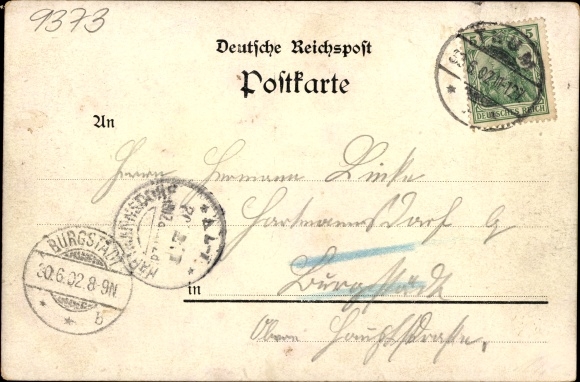 9373
Deutsche Reichspost
Postkarte
5 5
DEUTSCHES REICH
An
Herrn Hermann Linke
Hartmannsdorf
BURGSTÄDT
30.6.02.8-9N
* * b
in Burgstädt
Obere Hauptstrasse,